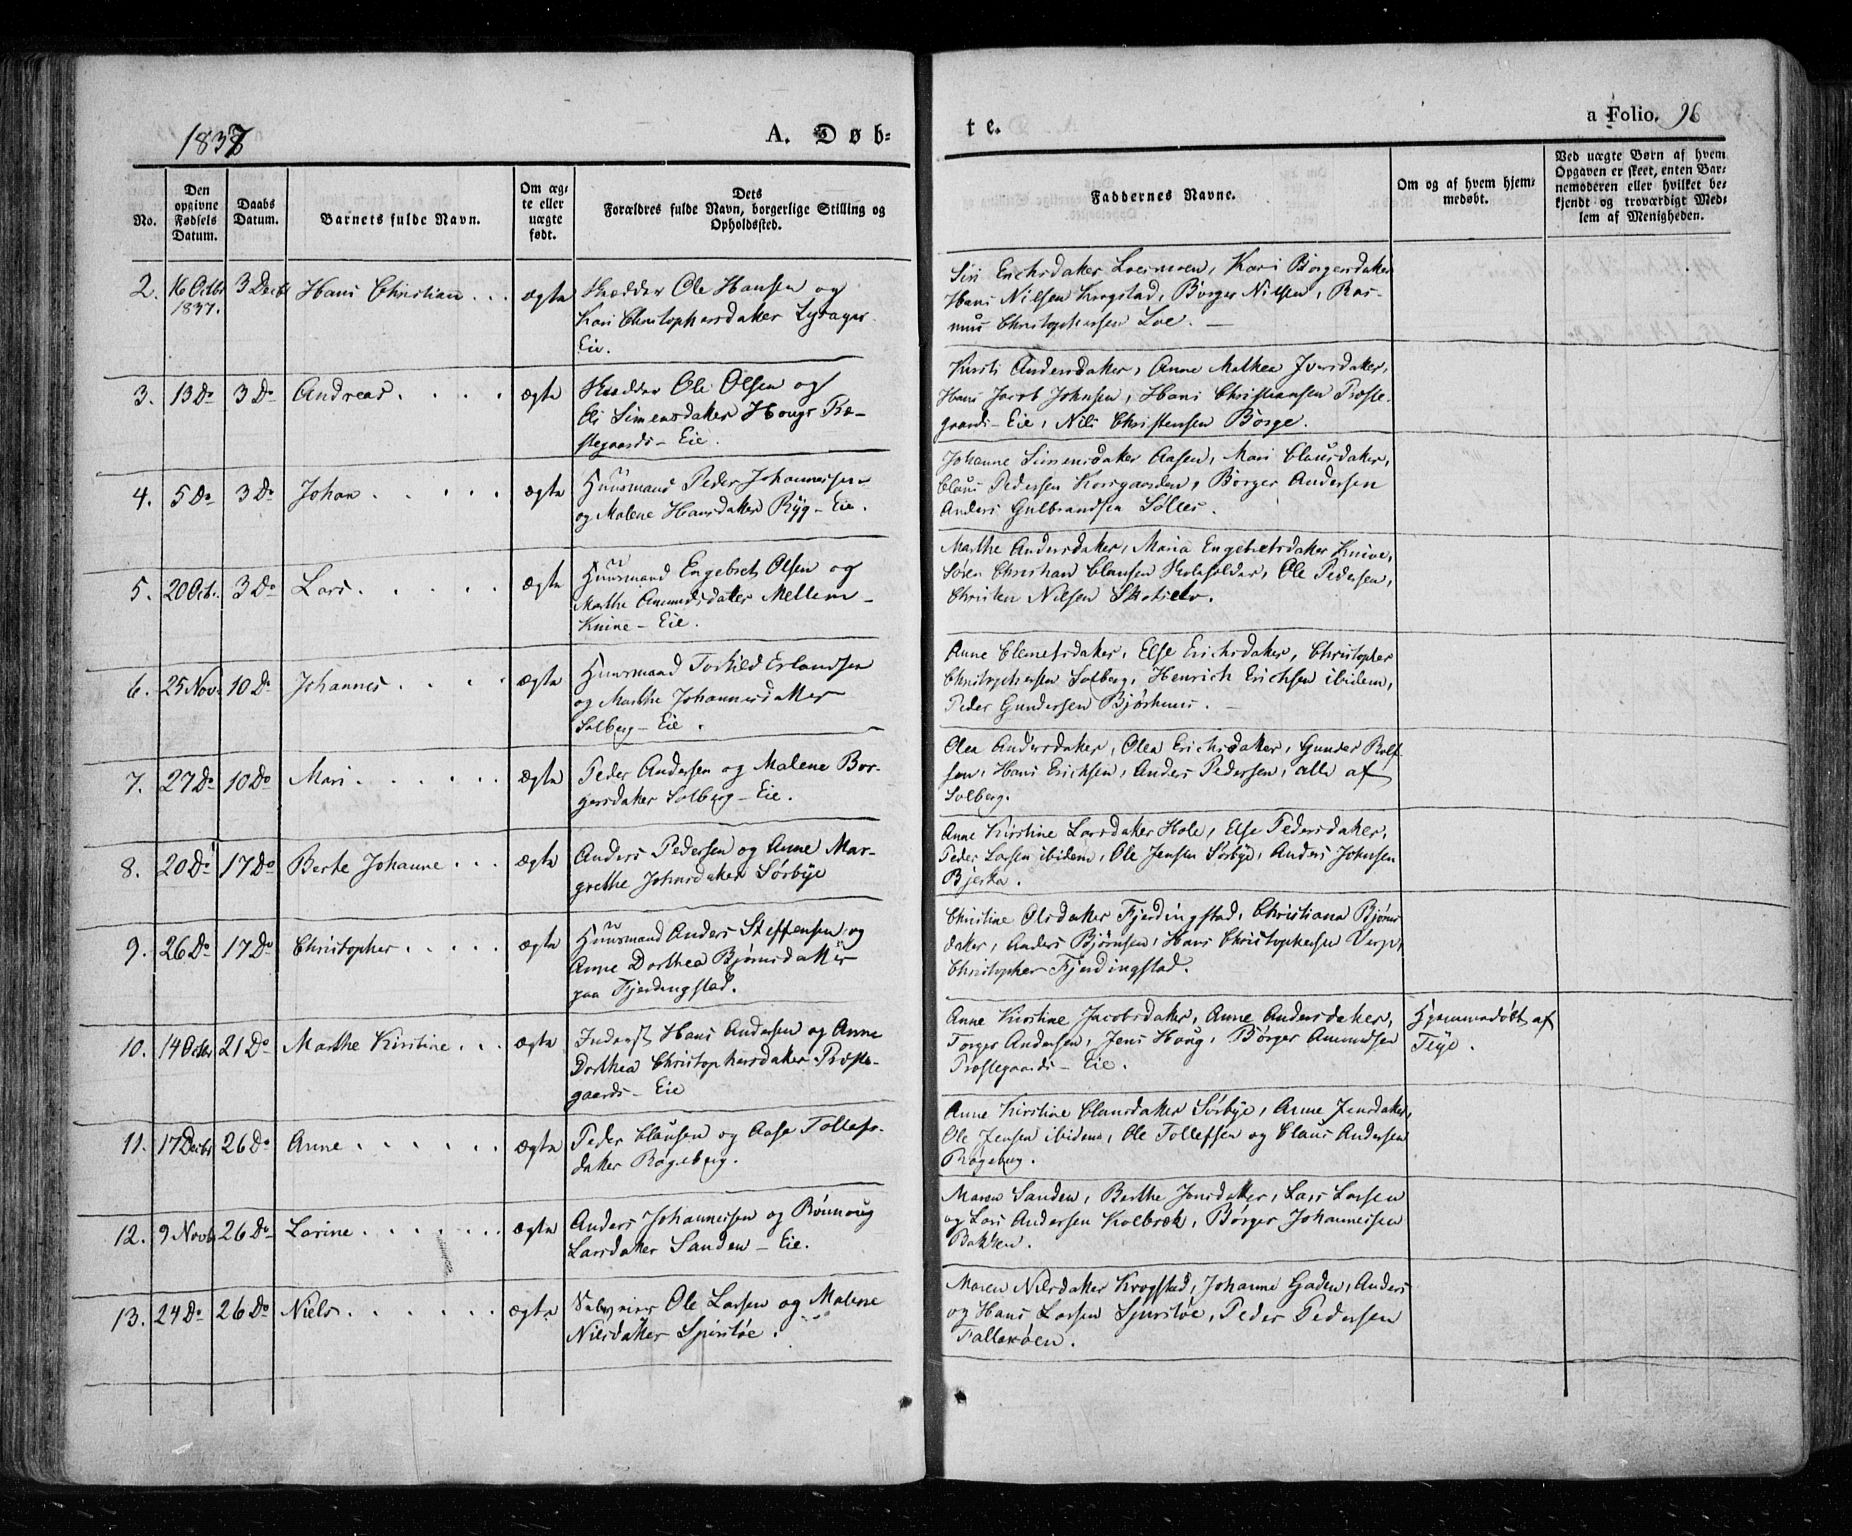 1837
A. Døb-
te.
a Folio. 96
No.
Den
opgivne
Fødsels
Datum.
Daabs
Datum.
Barnets fulde Navn.
Om æg-
te eller
uægte
født.
Dets
Forældres fulde Navn, borgerlige Stilling og
Opholdssted.
Faddernes Navne.
Om og af hvem hjem-
medøbt.
Ved uægte Børn af hvem
Opgaven er skeet, enten Bar-
nemoderen eller hvilket be-
kjendt og troværdigt Med-
lem af Menigheden.
2. 16 Octbr 3 Decbr Hans Christian ægte
1837.
Ole Hansen og
Kari Christophersdatter
Eie.
Siri Erichsdatter, Kari Børgersdatter
Hans Nilsen Krogstad, Børger Nilsen, Ras-
mus Christophersen Loe.
3. 13 Do 3 Do Andreas ægte
Ole Olsen og
Simensdatter Houg Præ-
stegaards-Eie.
Kirsti Andersdatter, Anne Mathea Iversdatter,
Hans Jacob Johnsen, Hans Christiansen Præste-
gaards-Eie, Nils Christensen Børge.
4. 5 Do 3 Do Johan ægte
Huusmand Peder Johannesen
og Malene Hansdatter Ryg-Eie.
Johanne Simensdatter Aasen, Mari Clausdatter,
Claus Pedersen Korsgaarden, Børger Andersen
Anders Gulbrandsen
5. 20 Oct. 3 Do Lars ægte
Huusmand Engebret Olsen og
Marthe Amundsdatter Mellem-
Knive-Eie.
Marthe Andersdatter, Maria Engebretsdatter Knive,
Søren Christian Clausen Skoleholder, Ole Pedersen,
Christen Nilsen
6. 25 Nov. 10 Do Johannes ægte
Huusmand Torkild Erlandsen
og Marthe Johannesdatter
Solberg-Eie.
Anne Clemetsdatter, Else Erichsdatter, Christopher
Christophersen Solberg, Henrich Erichsen ibidem,
Peder Gundersen
7. 27 Do 10 Do Mari ægte
Peder Andersen og Malene Bør-
gersdatter Solberg-Eie.
Olea Andersdatter, Olea Erichsdatter, Gunder Rolf-
sen, Hans Erichsen, Anders Pedersen, alle af
Solberg.
8. 20 Do 17 Do Berte Johanne ægte
Anders Pedersen og Anne Mar-
grethe Johnsdatter Sørbye
Anne Kirstine Larsdatter Hole, Else Pedersdatter,
Peder Larsen ibidem, Ole Jensen Sørbye, Anders Johnsen
Bjerka.
9. 26 Do 17 Do Christopher ægte
Huusmand Anders Steffensen og
Anne Dorthea Bjørnsdatter
paa Fjerdingstad.
Christine Olsdatter Fjerdingstad, Christiana Bjørns
datter, Anders Bjørnsen, Hans Christophersen Verp,
Christopher Fjerdingstad.
10. 14 Octbr 21 Do Marthe Kirstine ægte
Inderst Hans Andersen og Anne
Dorthea Christophersdatter Præste-
gaards-Eie
Anne Kirstine Jacobsdatter, Anne Andersdatter,
Torger Andersen, Jens Houg, Børger Amundsen
Præstegaards-Eie.
Hjemmedøbt af
Teye.
11. 17 Decbr 26 Do Anne ægte
Peder Clausen og Aase Tollefs-
datter Røgeberg.
Anne Kirstine Clausdatter Sørbye, Anne Jensdatter,
Ole Jensen ibidem, Ole Tollefsen og Claus Andersen
Røgeberg.
12. 9 Novbr 26 Do Larine ægte
Anders Johannesen og Rønnoug
Larsdatter Sanden-Eie.
Maren Sanden, Berthe Jonsdatter, Lars Larsen
og Lars Andersen Kolbræk, Børger Johannesen
Bakken.
13. 24 Do 26 Do Niels ægte
Ole Larsen og Malene
Nilsdatter Spirstøe.
Maren Nilsdatter Krogstad, Johanne Gaden, Anders
og Hans Larsen Spirstøe, Peder Pedersen